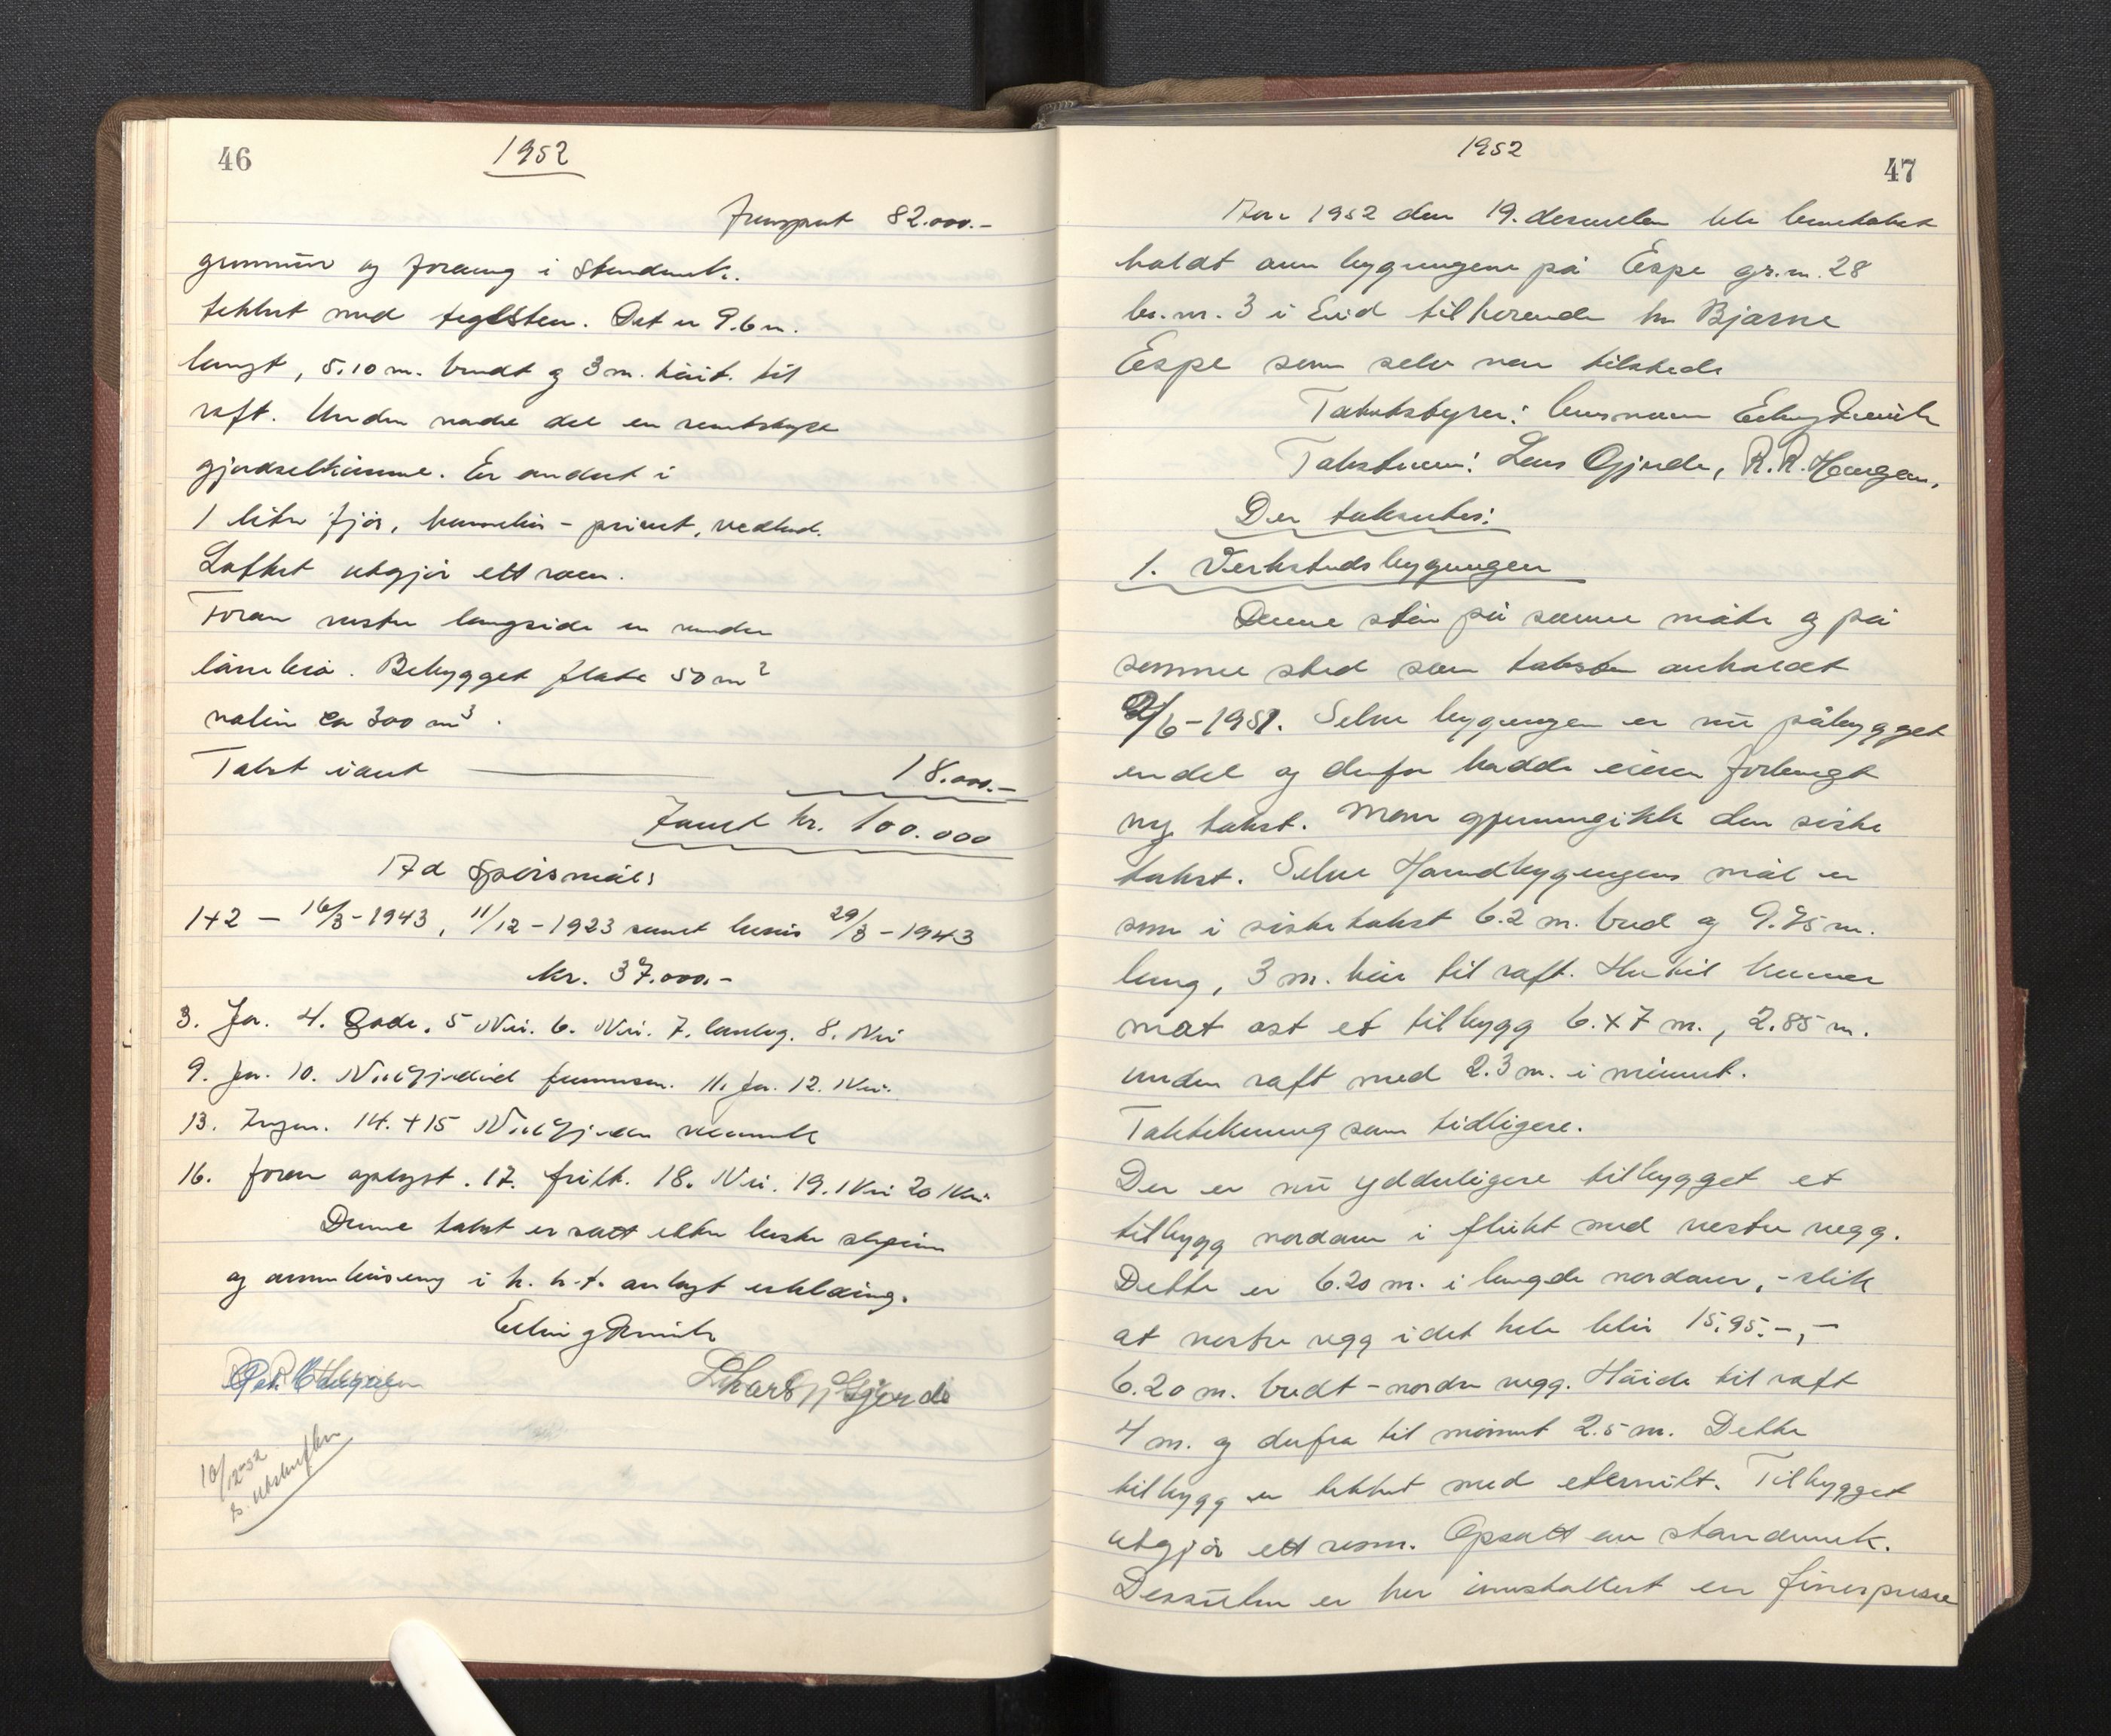 46
1952
Transport 82.000.-
grunnmur og foraung i Stendverk.
tekket med teglsten. Det er 9.6 m.
langt, 5.10 m. bredt og 3 m. høit. til
raft. Under nedre del er
gjødselkumme. Er innredet i
1 lite fjøs, hønsehus - privet, vedbod.
Loftet utgjør ett rom.
Foran vestre langside er
låvebro. Bebygget flate 50 m²
volum ca 300 m³.
Takst iant 18.000.-
Iannt kr. 100.000
Ad Spørsmål:
1+2 - 16/3-1943, 11/12-1923 samt husis 29/3-1943
kr. 37.000.-
3. Ja. 4. Gode. 5 Nei. 6. Nei. 7. landbrg. 8. Nei
9. Ja. 10. fremmsm. 11. Ja. 12. Nei.
13. Ingen. 14. + 15
16. foran oplyst. 17. fritt. 18. Nei. 19. Nei 20 Nei
Denne takst er satt etter beste skjønn
og overbevisning i h. h. t. avlagt erklæring.
Erling
Lars Gjerde
10/12-52
s. utskriften
1952
47
Aar 1952 den 19. desember ble branntakst
holdt over bygningene på Espe gr.nr. 28
br.nr. 3 i Eid tilhørende hr Bjarne
Espe som selv var tilstede
Takstbyrer: lensmann Erling
Takstmenn: Lars Gjerde, R. R. Haugen.
Der takseres:
1. Verkstedsbygningen
Denne står på samme måte og på
samme sted som taksten avholdt
2/6-1951. Selve bygningen er nu påbygget
endel og derfor hadde eieren forlangt
ny takst. Man gjennemgikk den siste
takst. Selve Hovedbygningens mål er
som i siste takst 6.2 m. bred og 9.75 m.
lang, 3 m. høi til raft. Hertil kommer
mot ost et tilbygg 6.x7 m., 2.85 m.
under raft med 2.3 m. i mønet.
Taktekning som tidligere.
Der er nu ydderligere tilbygget et
tilbygg nordover i flukt med vestre vegg.
Dette er 6.20 m. i lengde nordover, - slik
at vestre vegg i det hele blir 15.95.-,-
6.20 m. bredt - nordre vegg. Høide til raft
4 m. og derfra til mønet 2.5 m. Dette
tilbygg er tekket med eternitt. Tilbygget
utgjør ett rom. Opsatt av standverk.
Dessuten er her innstallert en finerpresse